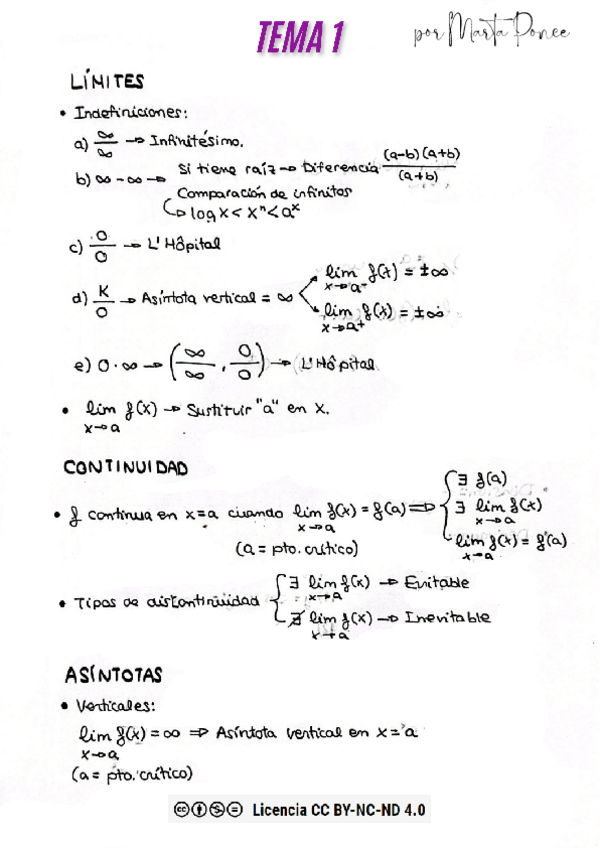 TEMA 1
por Marta Ponce
LÍMITES
• Indefiniciones:
a) ∞/∞ → Infinitésimo.
b) ∞ - ∞ → Si tiene raíz → Diferencia (a-b)(a+b)/(a+b)
Comparación de infinitos
↳ log x < xⁿ < aˣ
c) 0/0 → L'Hôpital
d) K/0 → Asíntota vertical = ∞
lim f(x) = ±∞
x→a⁻
lim f(x) = ±∞
x→a⁺
e) 0·∞ → (∞/∞, 0/0) → L'Hôpital
• lim f(x) → Sustituir "a" en x.
x→a
CONTINUIDAD
• f continua en x=a cuando lim f(x) = f(a) ⇒ { ∃ f(a)
x→a
∃ lim f(x)
x→a
lim f(x) = f(a)
x→a
(a = pto. crítico)
• Tipos de discontinuidad { ∃ lim f(x) → Evitable
x→a
∄ lim f(x) → Inevitable
x→a
ASÍNTOTAS
• Verticales:
lim f(x) = ∞ ⇒ Asíntota vertical en x = a
x→a
(a = pto. crítico)
Licencia CC BY-NC-ND 4.0